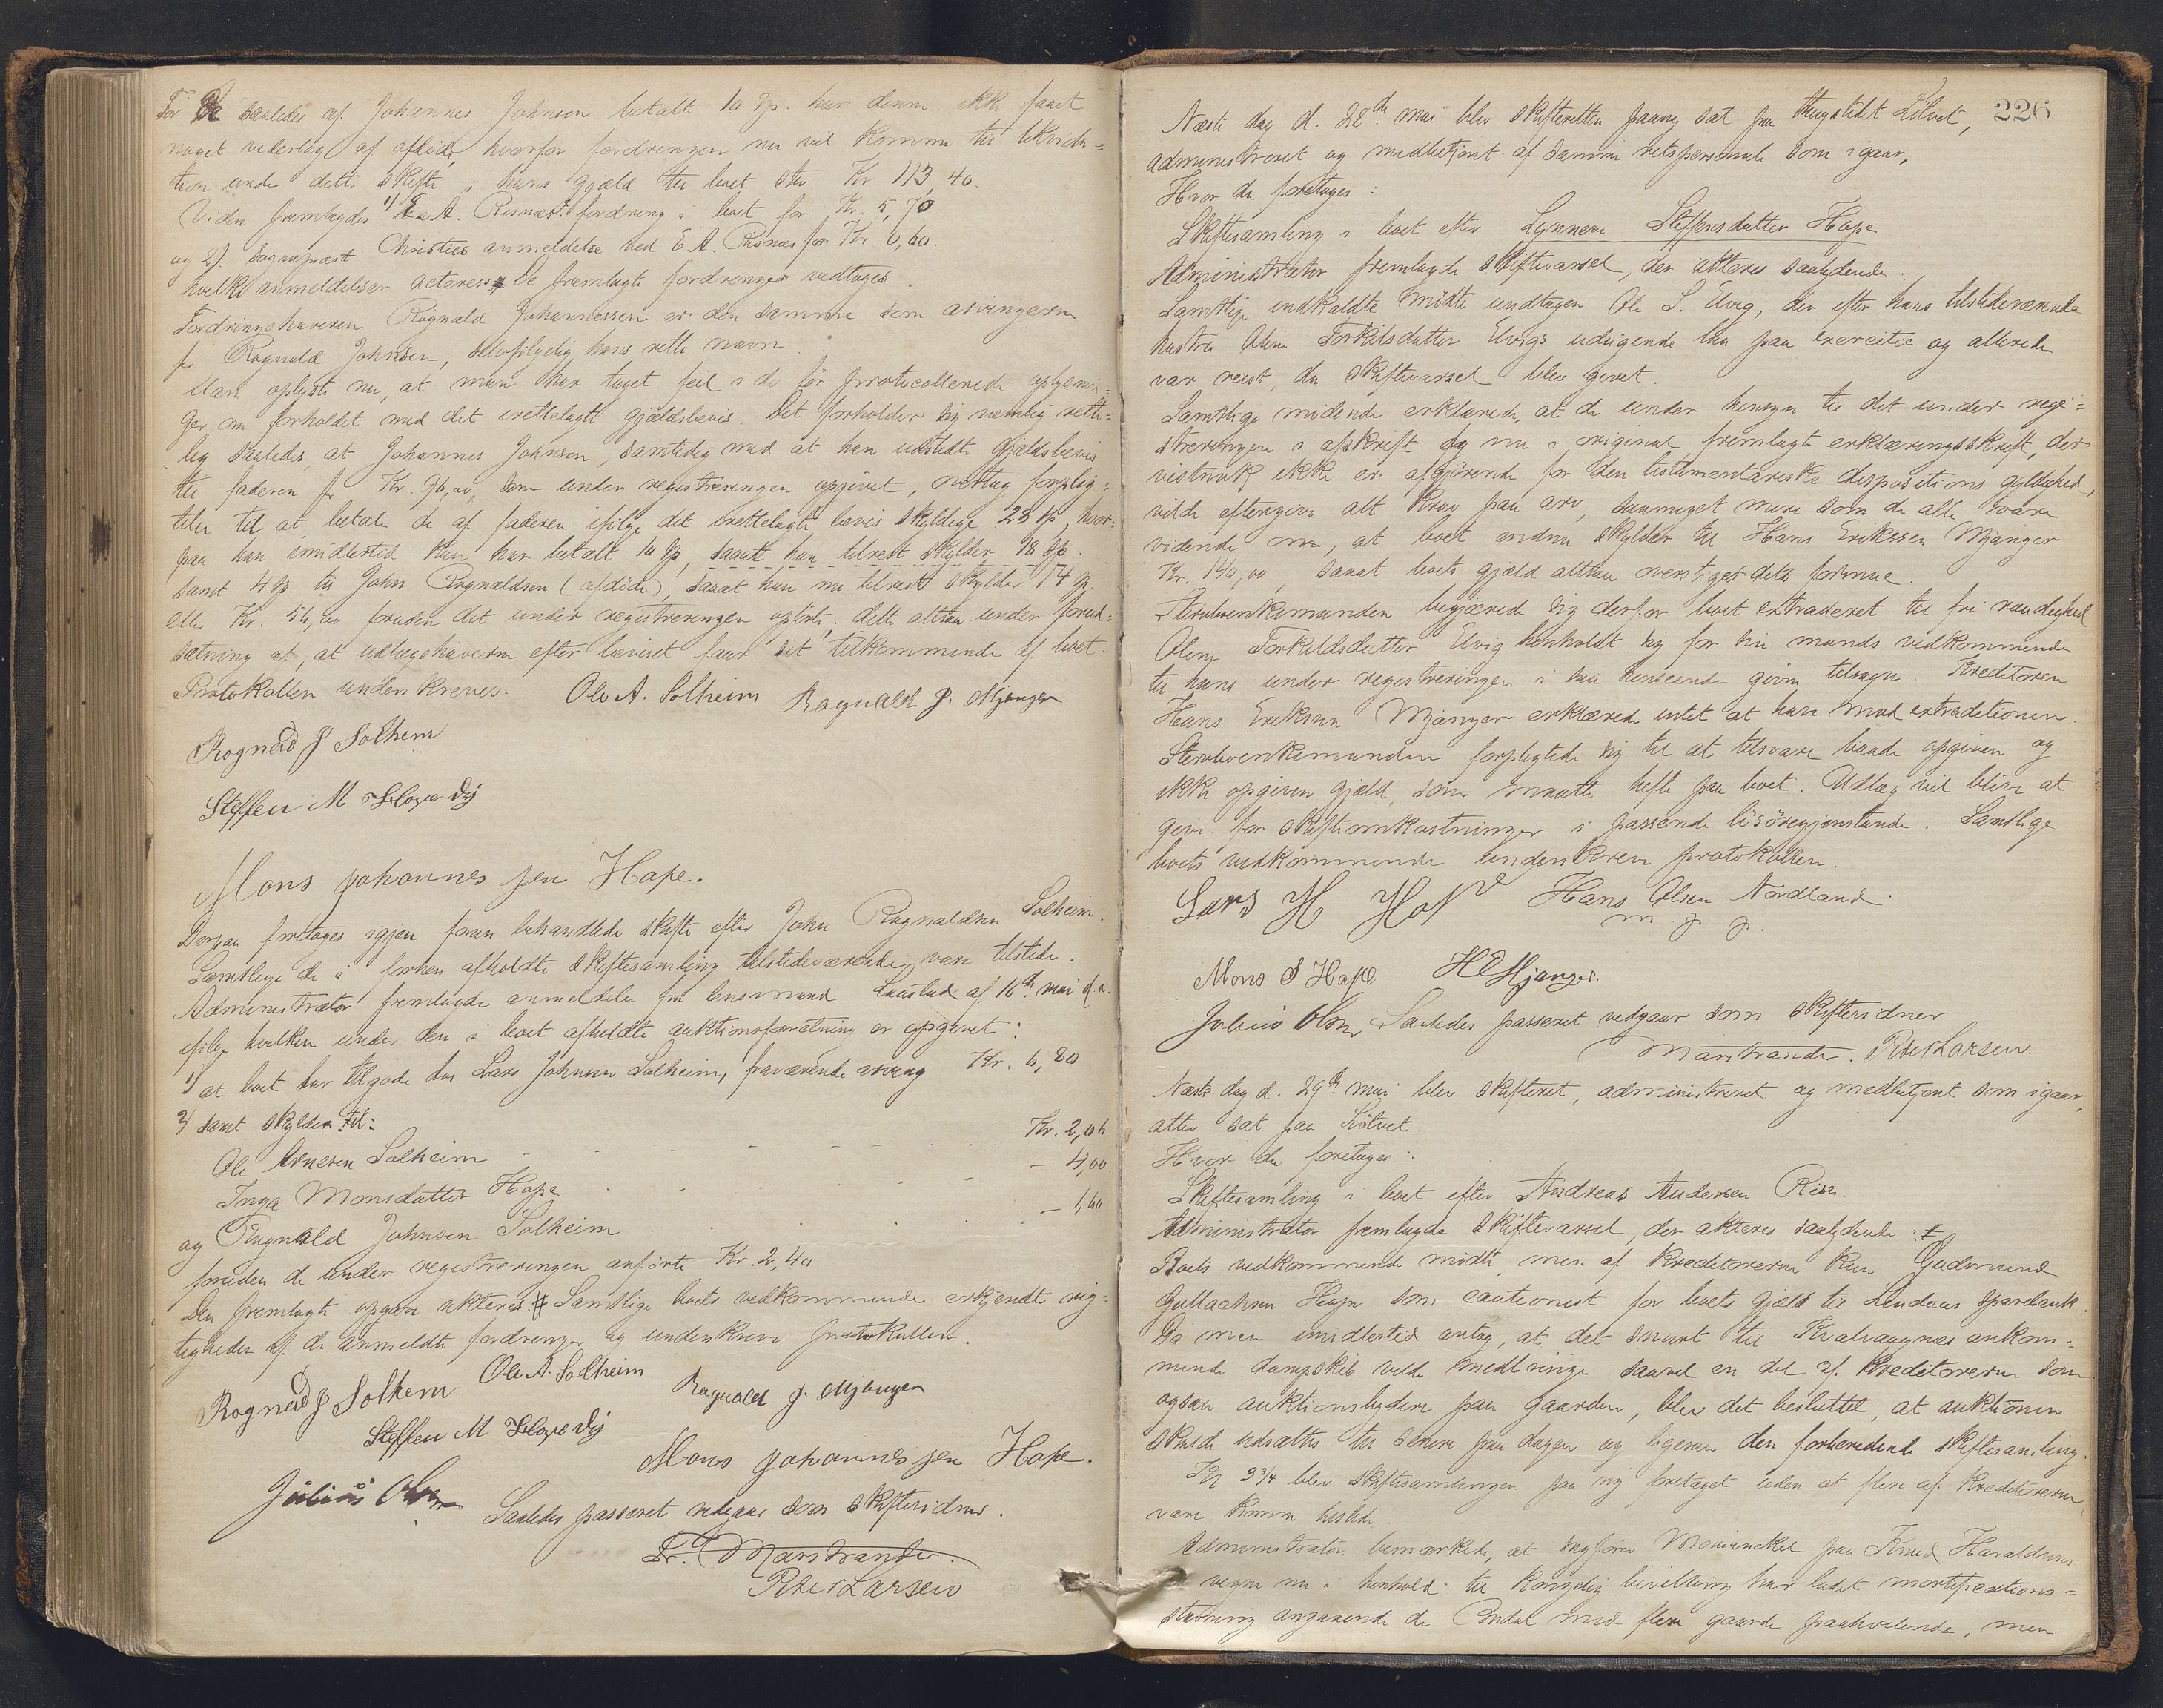 For de saaledes af Johannes Johnsen betalt 10 Sp. har denne ikke faaet
noget vederlag af afdøde, hvorfor fordringen nu vil komme til likvida=
tion under dette skifte, i hans gjæld til boet stor Kr. 113,40.
Viden fremlagdes 1) E. A. Risnæs fordring i boet for Kr. 5,70
og 2). Sogneprest Christies anmeldelse ved E A Risnæs for Kr. 0,60.
hvilke anmeldelser acteres # De fremlagte fordringer vedtoges.
Fordringshaveren Ragnald Johannessen er den samme som arvingerne
for Ragnald Johnsen, selvfølgelig hans rette navn.
Man oplyste nu, at man har taget feil i de før protocollerede oplysnin=
ger om forholdet med det irettelagte gjældsbevis. Det forholder sig nemlig rette=
lig saaledes, at Johannes Johnsen, samtidig med at han udstedte gjældsbevis
til faderen for Kr. 96,00, som under registreringen opgivet, overtog forplig=
telse til at betale de af faderen ifølge det irettelagte bevis skyldige 28 sp, hvor=
paa han imidlertid kun har betalt 10 sp, saaat han tilrest skylder 18 sp.
samt 4 sp. til John Ragnaldsen (afdøde), saaat han nu tilrest skylder 14 sp.
eller Kr. 56,00 foruden det under registreringen opførte, dette altsaa under forud=
sætning af, at udlægshaverne efter beviset faar sit tilkommende af boet.
Protokollen underskreves. Ole A. Solheim Ragnald J. Mjanger
Rognald J Solhem
Steffen M Hope
Mons Johannes sen Hope.
Derpaa foretoges igjen foran behandlede skifte efter John Ragnaldsen Solheim.
Samtlige de i forhen afholdte skiftesamling tilstedeværende vare tilstede.
Administrator fremlagde anmeldelse fra lensmand Laastad af 16de mai d. a.
ifølge hvilken under den i boet afholdte auktionsforretning er opgivet:
1) at boet har tilgode hos Lars Johnsen Solheim, fraværende arving Kr. 6,80
2) samt skylder til:
Ole Arnesen Solheim - - - - Kr. 2,06
Inga Monsdatter Hope - 4,00.
og Ragnald Johnsen Solheim - 1,60
foruden de under registreringen anførte Kr. 2,40
Den fremlagte opgave akteres # Samtlige boets vedkommende erkjendte rig=
tigheden af de anmeldte fordringer og underskrev protokollen.
Rognald J Solhem Ole A. Solheim Ragnald J. Mjanger
Steffen M Hope
Mons Johannes sen Hope.
Julius Olsen Saaledes passeret vedgaar som skiftevidner.
Fr. Marstrander.
Peter Larsen
226
Næste dag d. 28de mai blev skifteretten paany sat paa thingstedet Lilvet,
administreret og medbetjent af samme retspersonale som igaar,
Hvor da foretoges:
Skiftesamling i boet efter Steffensdatter Hope
Administrator fremlagde skiftevarsel, der akteres saalydende.
Samtlige indkaldte mødte undtagen Ole S. Elvig, der efter hans tilstedeværende
hustru Olina Torkildsdatter Elvigs udsigende laa paa exercitie og allerede
var reist, da skiftevarsel blev givet.
Samtlige mødende erklærede, at de under hensyn til det under regi=
streringen i afskrift og nu i original fremlagt erklæringsskrift, der
vistnok ikke er afgjørende for den testamentariske dispositions gyldighed,
vilde eftergive alt krav paa arv, saameget mere som de alle vare
vidende om, at boet endnu skylder til Hans Eriksen Mjanger
Kr. 140,00, saaat boets gjæld altsaa overstiger dets formue.
Sterbenkemanden begjærede sig derfor boet extraderet til fri raadighed
Olina Torkildsdatter Elvig henholdt sig for sin mands vedkommende
til hans under registreringen i saa henseende givne tilsagn. Kreditoren
Hans Eriksen Mjanger erklærede intet at have mod extraditionen.
Sterbenkemanden forpligtede sig til at tilsvare baade opgiven og
ikke opgiven gjæld, som maatte hefte paa boet. Udlæg vil blive at
give for skifteomkostninger i passende løsøregjenstande. Samtlige
boets vedkommende underskrev protokollen.
Lars H Hope Hans Olsen Nordland.
m. p. p.
Mons S Hope H E Mjanger.
Julius Olsen Saaledes passeret vedgaar som skiftevidner
Marstrander. Peter Larsen.
Næste dag d. 29de mai blev skifteret, administreret og medbetjent som igaar,
atter sat paa Lilvet.
Hvor da foretoges:
Skiftesamling i boet efter Andreas Andersen Risa.
Administrator fremlagde skiftevarsel, der akteres saalydende: #
Boets vedkommende mødte, men af kreditorerne kun Gudmund
Gullachsen Hope som cautionist for boets gjæld til Lindaas Sparebank.
Da man imidlertid antog, at det snart til Kvalvaagnæs ankom=
mende dampskib vilde medbringe saavel en del af kreditorerne som
ogsaa auktionsbydere paa gaarden, blev det besluttet, at auktionen
skulde udsættes til senere paa dagen og ligesaa den forberedende skiftesamling.
Kl 3 3/4 blev skiftesamlingen paa ny foretaget uden at flere af kreditorerne
vare komne tilstede.
Administrator bemærkede, at sagfører Mowinckel paa Knud Haraldsens
vegne nu i henhold til kongelig bevilling har ladet mortifications=
stevning angaaende de med flere gaarde paahvilende, men